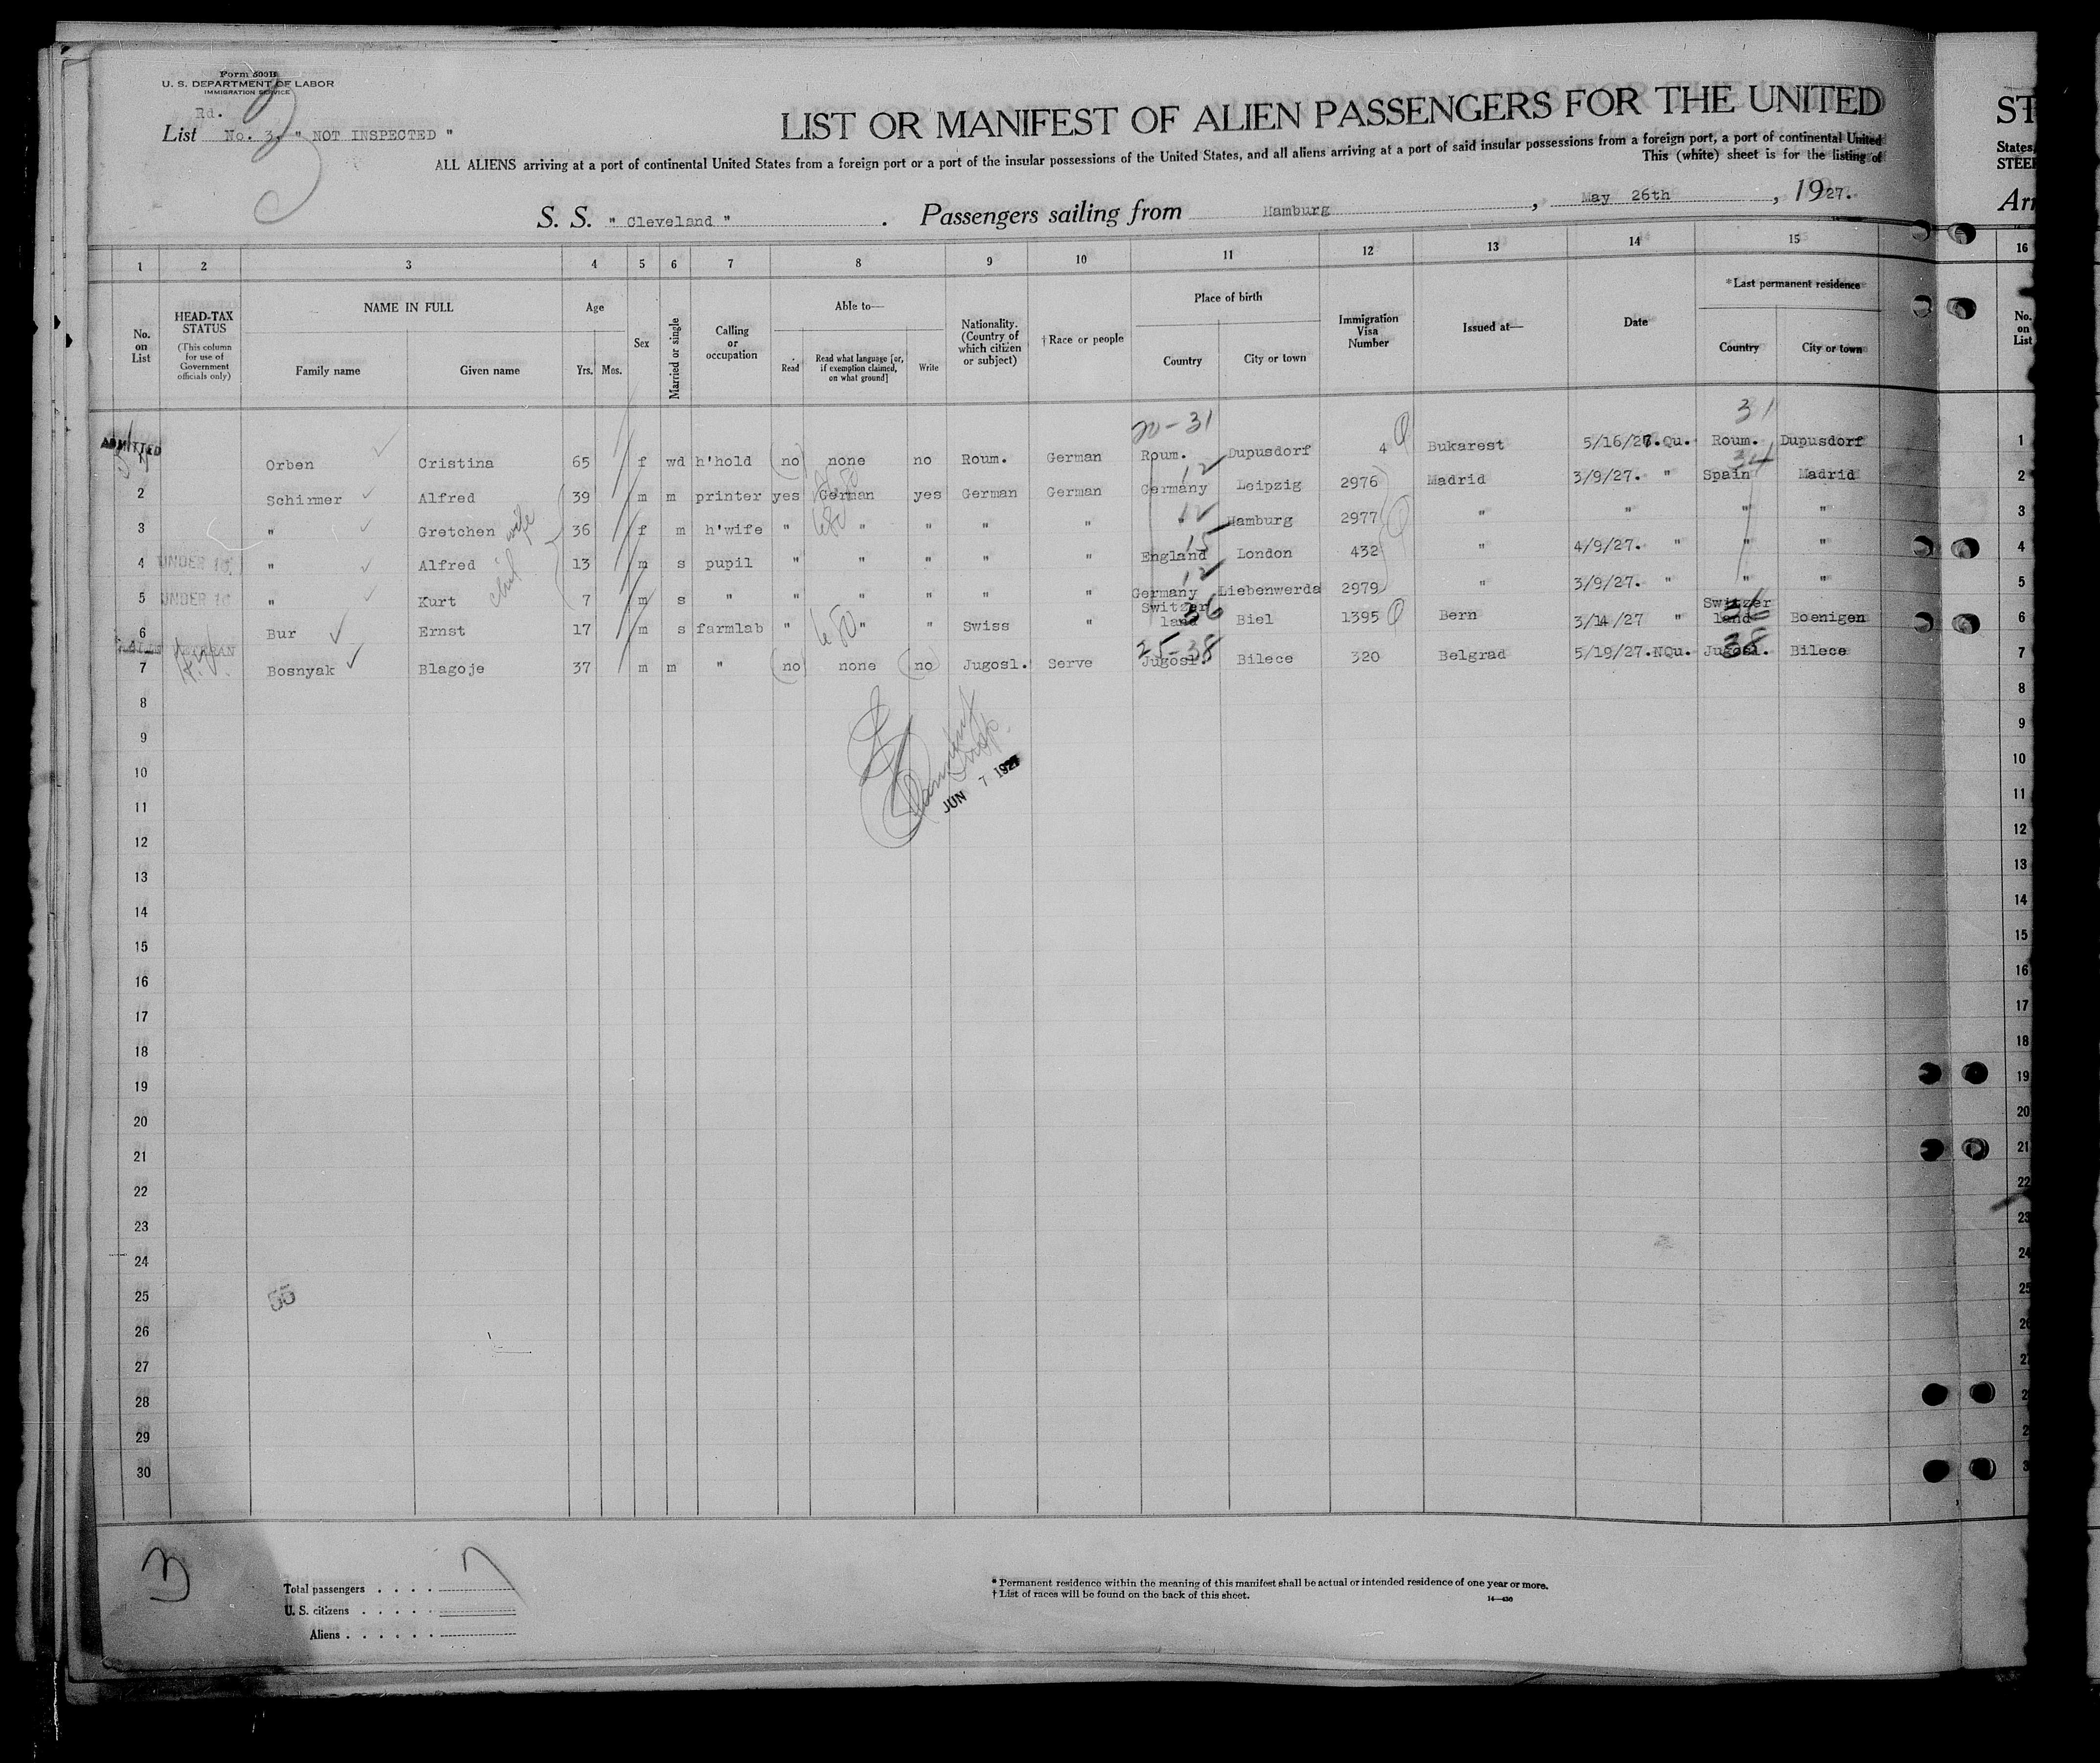 Form 500B
U. S. DEPARTMENT OF LABOR
IMMIGRATION SERVICE
Rd.
List No. 3. " NOT INSPECTED "
3
LIST OR MANIFEST OF ALIEN PASSENGERS FOR THE UNITED
ST
ALL ALIENS arriving at a port of continental United States from a foreign port or a port of the insular possessions of the United States, and all aliens arriving at a port of said insular possessions from a foreign port, a port of continental United
States,
This (white) sheet is for the listing of
STEE
S. S. " Cleveland " . Passengers sailing from Hamburg , May 26th , 1927.
Arr
1 2 3 4 5 6 7 8 9 10 11 12 13 14 15 16
No. on List
HEAD-TAX STATUS (This column for use of Government officials only)
NAME IN FULL
Family name
Given name
Age
Yrs. Mos.
Sex
Married or single
Calling or occupation
Able to—
Read
Read what language [or, if exemption claimed, on what ground]
Write
Nationality. (Country of which citizen or subject)
† Race or people
Place of birth
Country
City or town
Immigration Visa Number
Issued at—
Date
* Last permanent residence
Country
City or town
No. on List
20-31 31
ADMITTED Orben Cristina 65 f wd h'hold (no) none no Roum. German Roum. Dupusdorf 4 Q Bukarest 5/16/27.Qu. Roum. Dupusdorf 1
2 Schirmer Alfred 39 m m printer yes German yes German German Germany 12 Leipzig 2976 Madrid 3/9/27. " Spain 34 Madrid 2
3 " Gretchen wife 36 f m h'wife " " " " " " 12 Hamburg 2977 Q " " " " 3
4 UNDER 16 " Alfred 13 m s pupil " " " " " England 15 London 432 " 4/9/27. " " " 4
5 UNDER 16 " Kurt 7 m s " " " " " " Germany 12 Liebenwerda 2979 " 3/9/27. " " " 5
6 Bur Ernst 17 m s farmlab " " " Swiss " Switzerland 36 Biel 1395 Q Bern 3/14/27 " Switzerland 36 Boenigen 6
25-38 38
7 Bosnyak Blagoje 37 m m " (no) none (no) Jugosl. Serve Jugosl. Bilece 320 Belgrad 5/19/27.NQu. Jugosl. Bilece 7
8 8
9 9
10 10
JUN 7 1927
11 11
12 12
13 13
14 14
15 15
16 16
17 17
18 18
19 19
20 20
21 21
22 22
23 23
24 24
25 55 25
26 26
27
28
29
30
3
Total passengers . . . . 7
U. S. citizens . . . . .
Aliens . . . . . .
* Permanent residence within the meaning of this manifest shall be actual or intended residence of one year or more.
† List of races will be found on the back of this sheet.
14—430